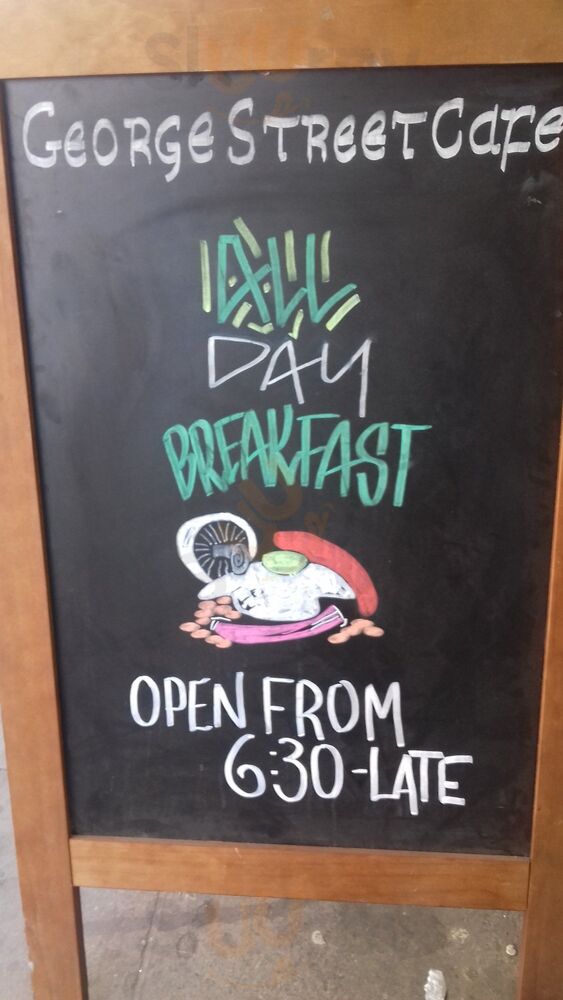 George Street Cafe
ALL
DAY
BREAKFAST
OPEN FROM
6:30-LATE